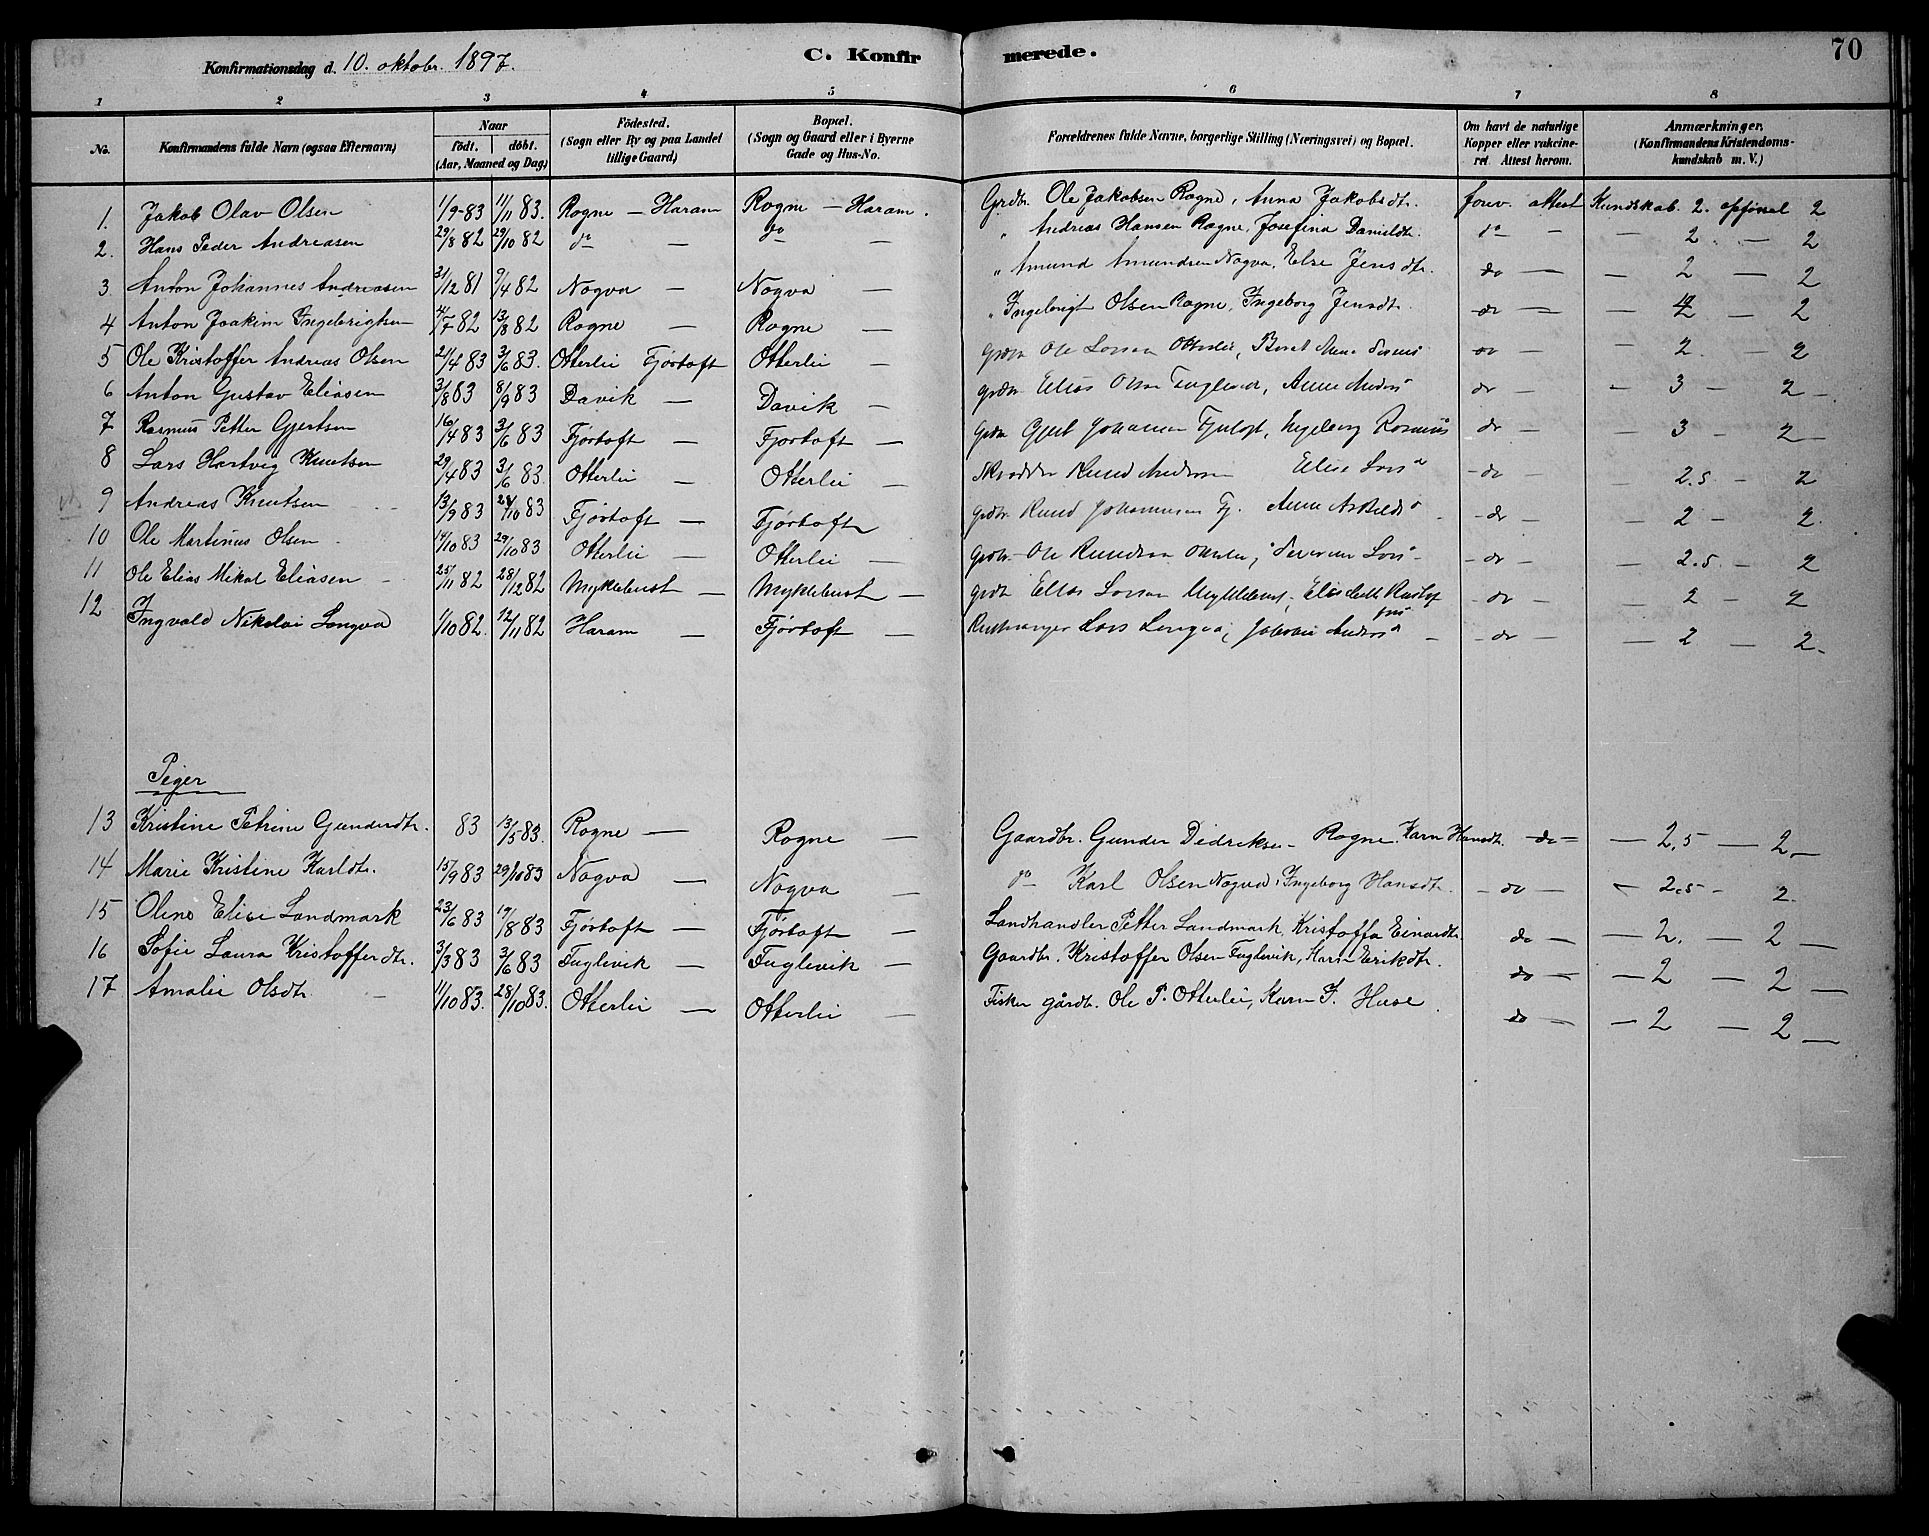 Konfirmationsdag d. 10. oktobr. 1897. C. Konfirmerede. 70
1 2 3 4 5 6 7 8
No. Konfirmandens fulde Navn (ogsaa Efternavn) Naar født. døbt. (Aar, Maaned og Dag) Fødested. (Sogn eller By og paa Landet tillige Gaard) Bopæl. (Sogn og Gaard eller i Byerne Gade og Hus-No. Forældrenes fulde Navne, borgerlige Stilling (Næringsvei) og Bopæl. Om havt de naturlige Kopper eller vakcineret. Attest herom. Anmærkninger. (Konfirmandens Kristendomskundskab m. V.)
1. Jakob Olav Olsen 1/9-83 11/11 83. Rogne — Haram Rogne — Haram. Grdbr. Ole Jakobsen Rogne, Anna Jakobsdtr. forev. attest Kundskab. 2. opførsel 2
2. Hans Peder Andreasen 29/8 82 29/10 82 do — do — " Andreas Hansen Rogne, Josefina Danieldtr. do — — 2. — 2
3. Anton Johannes Andreasen 31/12 81 9/4 82 Nogva — Nogva — " Amund Amundsen Nogva, Else Jensdtr. do — — 2 — 2
4 Anton Joakim Ingebrigtsen 4/7 82 13/8 82 Rogne — Rogne — " Ingebrigt Olsen Rogne, Ingeborg Jensdtr. do — — 2 — 2
5 Ole Kristoffer Andreas Olsen 21/4 83 3/6 83. Otterlei Fjørtoft Otterlei — grdbr Ole Larsen Otterlei, Beret do — — 2. — 2
6 Anton Gustav Eliasen 3/8 83 8/9 83 Davik — Davik — grdbr Elias Olsen Anne do — — 3 — 2 —
7 Rasmus Petter Gjertsen 16/4 83 3/6 83 Fjørtoft — Fjørtoft — grdbr Gjert Johansen Fjørtoft, Ingeborg Rasmus do — — 3 — 2 —
8 Lars Hartvig Knutsen 29/4 83 3/6 83. Otterlei — Otterlei — Skrædder Knud Andersen Elise Lars" — do — — 2.5 — 2
9 Andreas Knutsen 13/9 83 28/10 83 Fjørtoft — Fjørtoft grdbr Knud Johannesen Fj. Anne — do — — 2 — 2.
10 Ole Martinus Olsen 14/10 83 29/10 83 Otterlei — Otterlei — grdbr Ole Knudsen Otterlei, Severine Lars" — do — — 2.5. — 2
11 Ole Elias Mikal Eliasen 25/11 82 28/12 82 Myklebust — Myklebust — grdbr Elias Larsen Myklebust, Elisabeth — do — — 2 — 2
12 Ingvald Nikolai Longva 1/10 82. 12/11 82 Haram — Fjørtoft — Lars Longva, Anders" — — do — — 2 — 2.
Piger
13 Kristine Petrine Gunderdtr. 83 13/5 83. Rogne — Rogne — Gaardbr. Gunder Didriksen Rogne. Karn Hansdtr. — do — — 2,5 — 2 —
14 Marie Kristine Karldtr. 15/9 83 29/10 83 Nogva — Nogva — do Karl Olsen Nogva, Ingeborg Hansdtr. — do — — 2.5 — 2.
15 Oline Elise Landmark 23/6 83 19/8 83 Fjørtoft — Fjørtoft — Landhandler Petter Landmark, Kristoffa Einardtr do — — 2. — 2 —
16 Sofie Laura Kristofferdtr. 3/3 83 3/6 83 Fuglevik — Fuglevik — Gaardbr. Kristoffer Olsen Fuglevik, Karn Erikdtr. do — — 2 — 2 —
17 Amalie Olsdtr. 11/10 83. 28/10 83. Otterlei — Otterlei — Fisker gårdbr. Ole P. Otterlei, Karn J. Huse. do — — 2 — 2 —